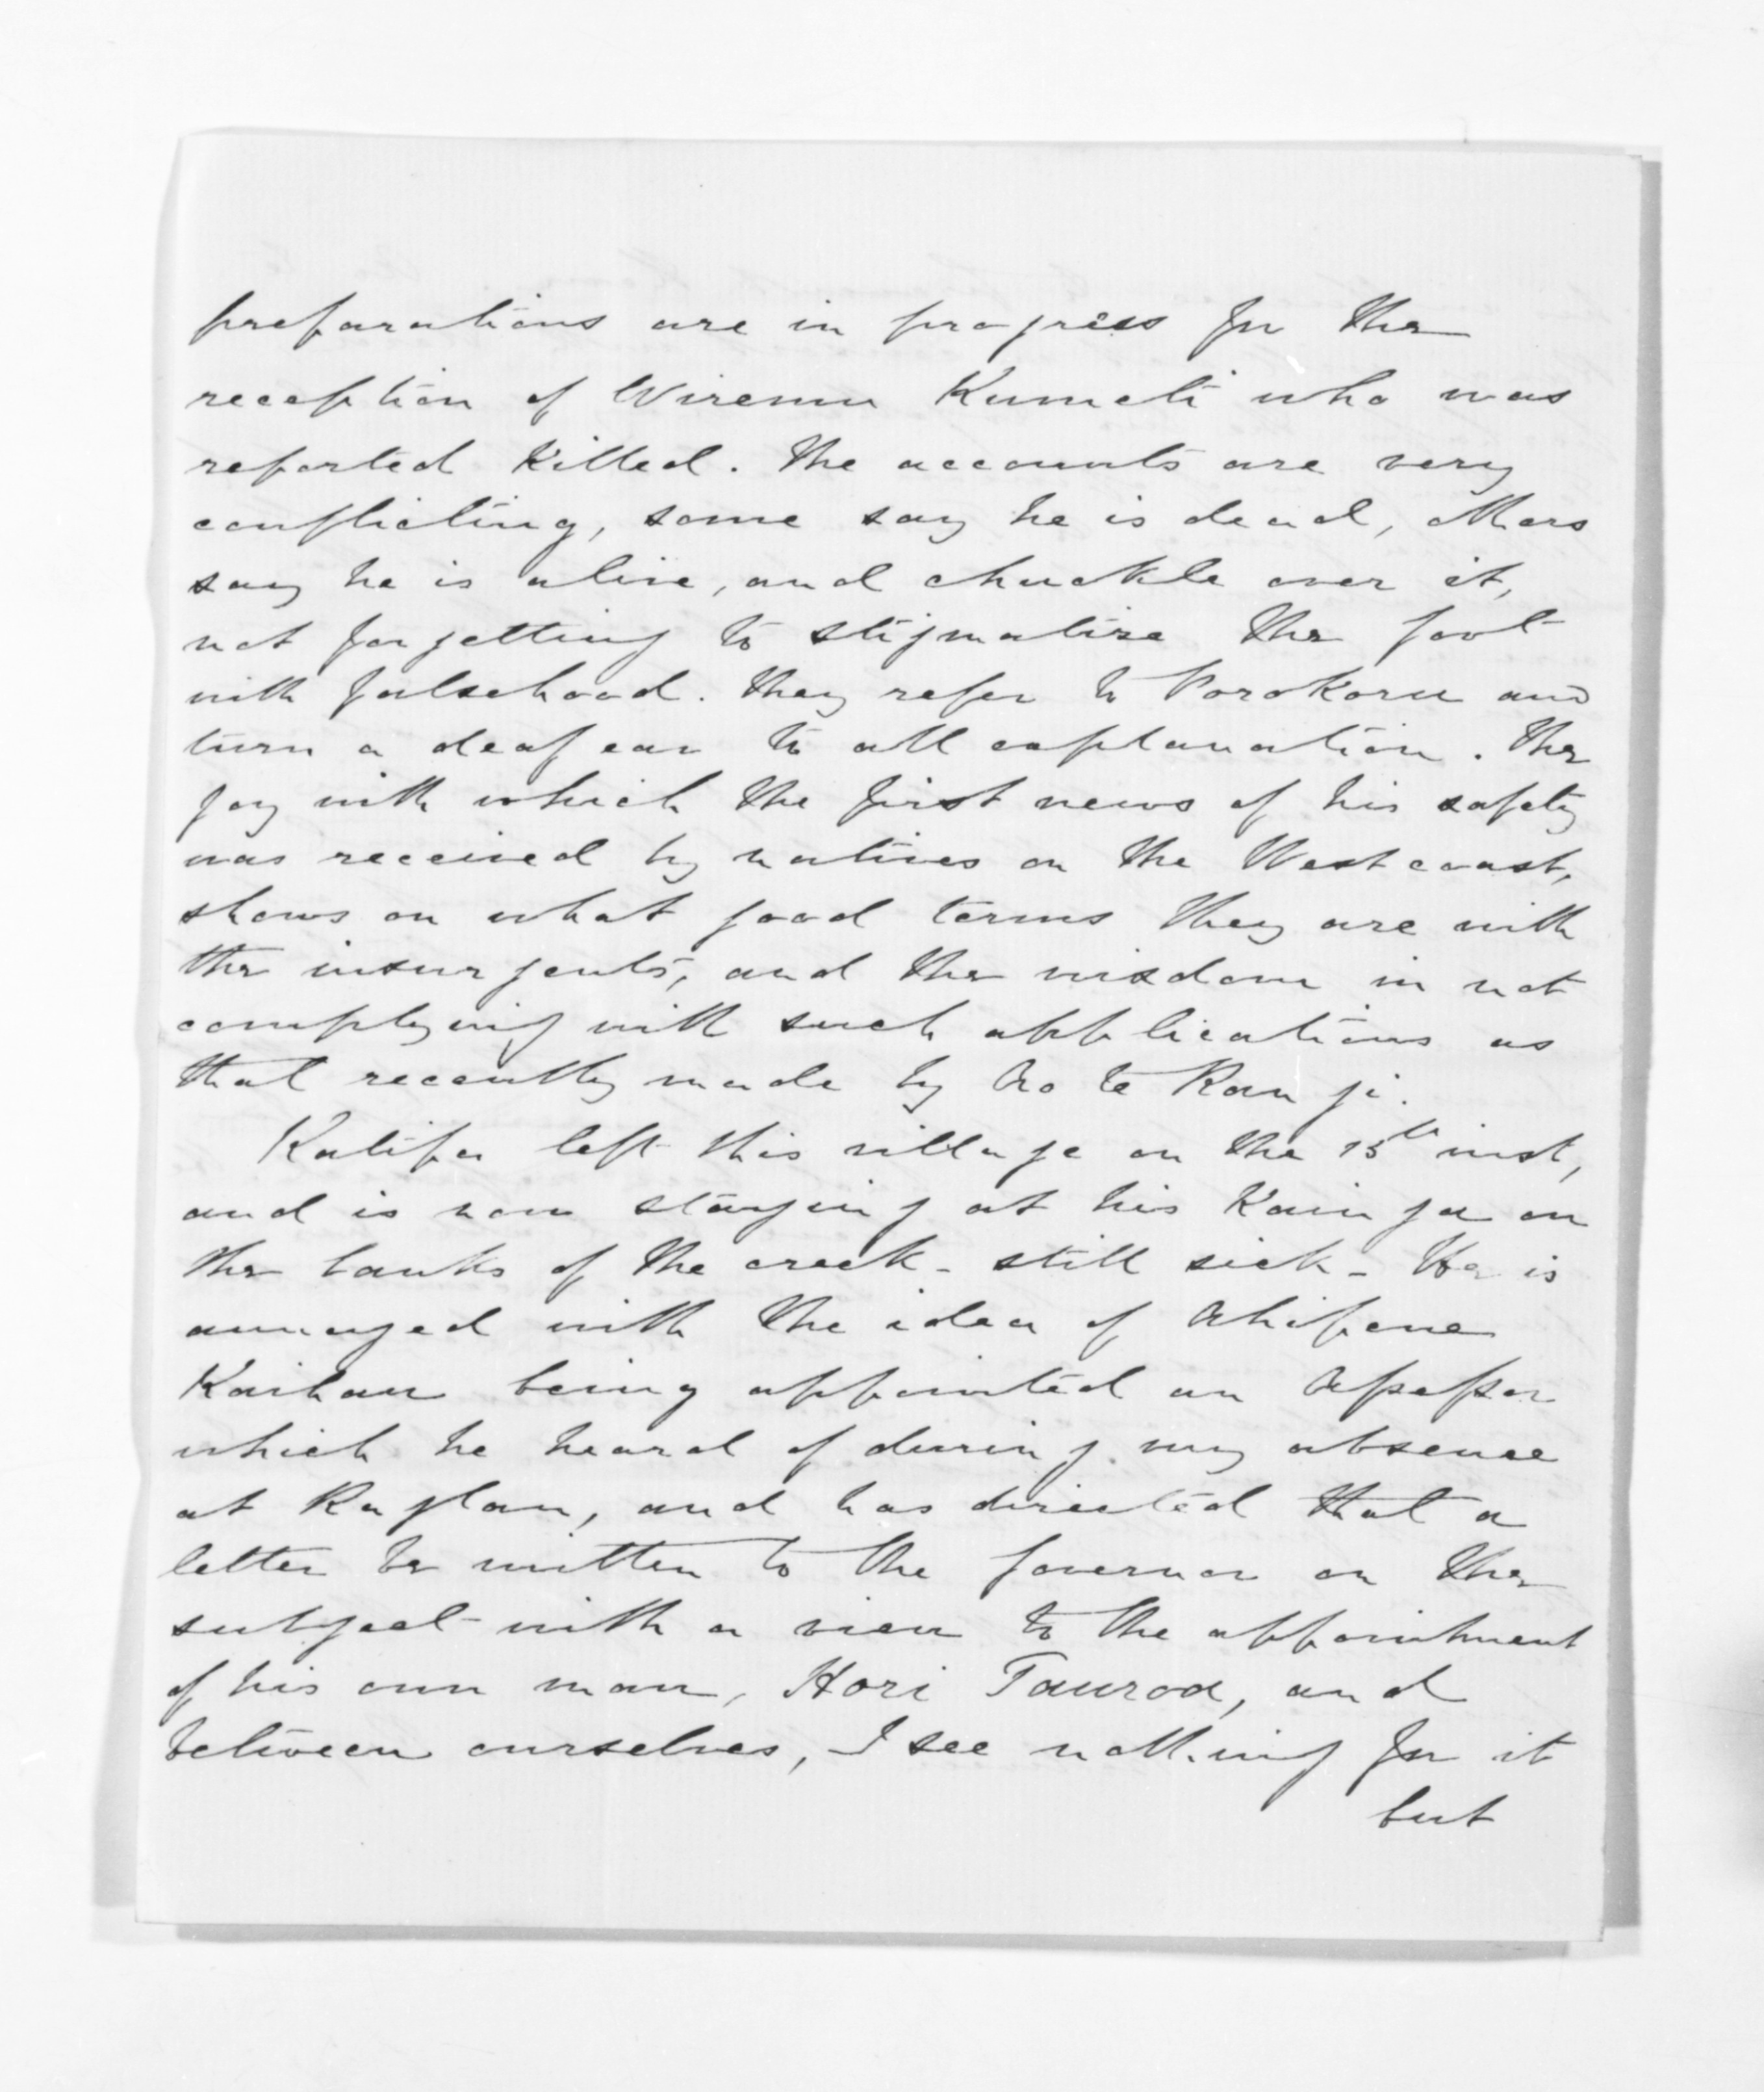 preparations are in progress for the
reception of Wiremu Kumeti who was
reported killed. The accounts are very
conflicting, some say he is dead, others
say he is alive, and chuckle over it,
not forgetting to stigmatise the Govt
with falsehood. They refer to Porokoru and
turn a deaf ear to all explanation. The
joy with which the first news of his safety
was received by natives on the West coast,
shows on what good terms they are with
the insurgents, and the wisdom in not
complying with such applications as
that recently made by Ao te Rangi.
Katipa left this village on the 15th inst,
and is now staying at his Kainga on
the banks of the creek - still sick - He is
annoyed with the idea of Ahipene
Kaihau being appointed an Assessor
which he heard of during my absence
at Raglan, and has directed that a
letter be written to the Governor on the
subject with a view to the appointment
of his own man, Hori Tauroa, and
between ourselves, I see nothing for it
but